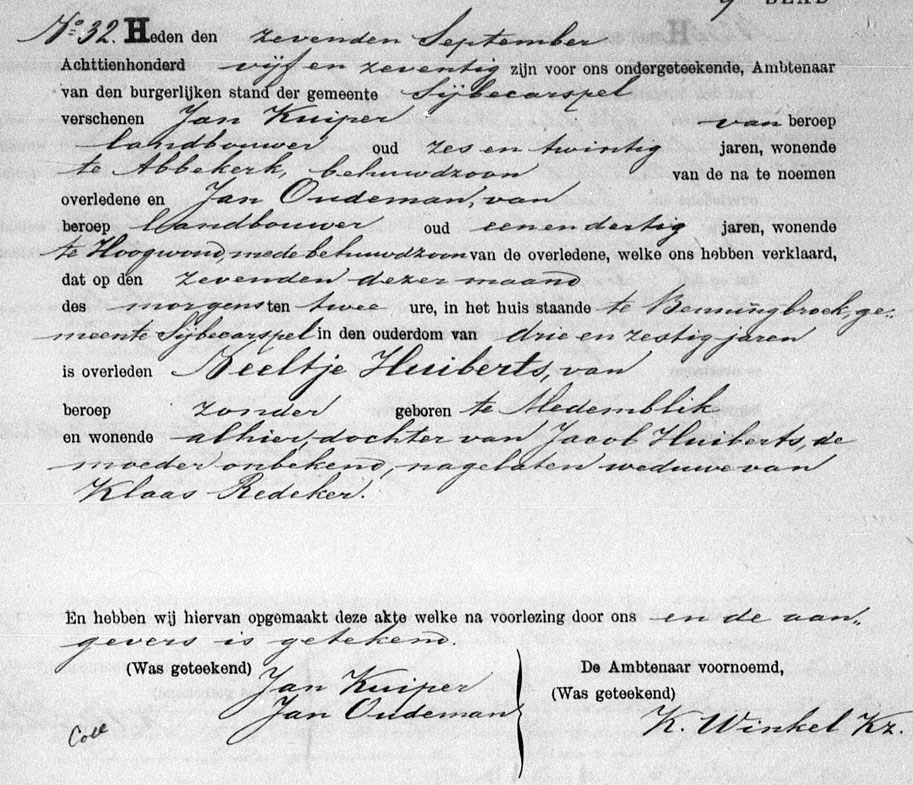 BLAD
No 32. Heden den zevenden September
Achttienhonderd vijf en zeventig zijn voor ons ondergeteekende, Ambtenaar
van den burgerlijken stand der gemeente Sijbecarspel
verschenen Jan Kuiper van beroep
landbouwer oud zes en twintig jaren, wonende
te Abbekerk, behuwdzoon van de na te noemen
overledene en Jan Oudeman, van
beroep landbouwer oud eenendertig jaren, wonende
te Hoogwoud, mede behuwdzoon van de overledene, welke ons hebben verklaard,
dat op den zevenden dezer maand
des morgens ten twee ure, in het huis staande te Benningbroek, ge-
meente Sijbecarspel in den ouderdom van drie en zestig jaren
is overleden Neeltje Huiberts, van
beroep zonder geboren te Medemblik
en wonende alhier, dochter van Jacob Huiberts, de
moeder onbekend, nagelaten weduwe van
Klaas Redeker.
En hebben wij hiervan opgemaakt deze akte welke na voorlezing door ons en de aan-
gevers is getekend.
(Was geteekend) De Ambtenaar voornoemd,
Jan Kuiper (Was geteekend)
Jan Oudeman K. Winkel Kz.